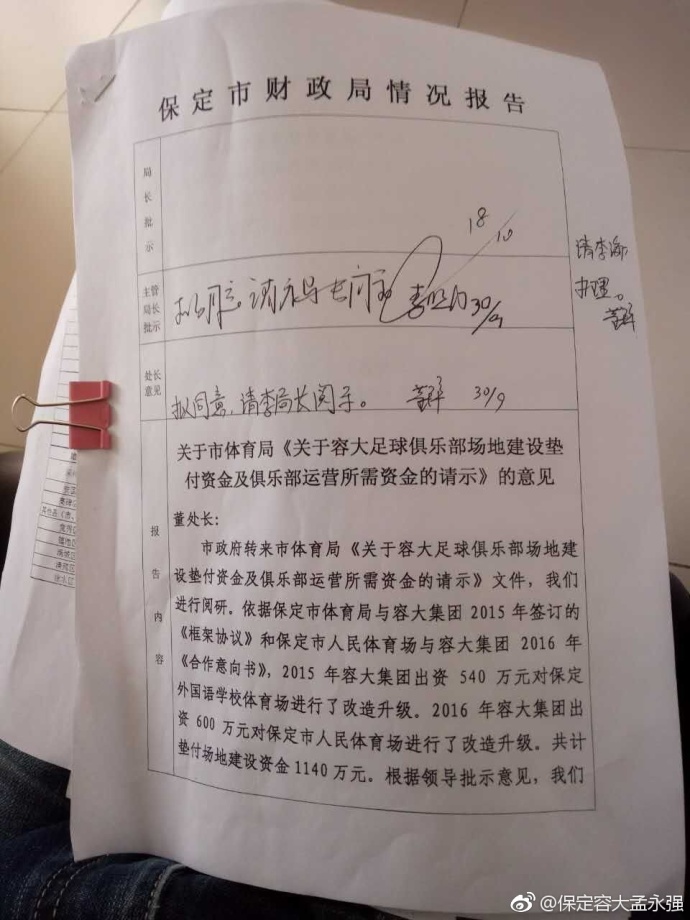 保定市财政局情况报告
局长批示
18/10
请李
办理。
主管局长批示
30/9
处长意见
拟同意，请李局长阅示。 30/9
报告内容
关于市体育局《关于容大足球俱乐部场地建设垫
付资金及俱乐部运营所需资金的请示》的意见
董处长：
市政府转来市体育局《关于容大足球俱乐部场地建
设垫付资金及俱乐部运营所需资金的请示》文件，我们
进行阅研。依据保定市体育局与容大集团 2015 年签订的
《框架协议》和保定市人民体育场与容大集团 2016 年
《合作意向书》，2015 年容大集团出资 540 万元对保定
外国语学校体育场进行了改造升级。2016 年容大集团出
资 600 万元对保定市人民体育场进行了改造升级。共计
垫付场地建设资金 1140 万元。根据领导批示意见，我们
@保定容大孟永强